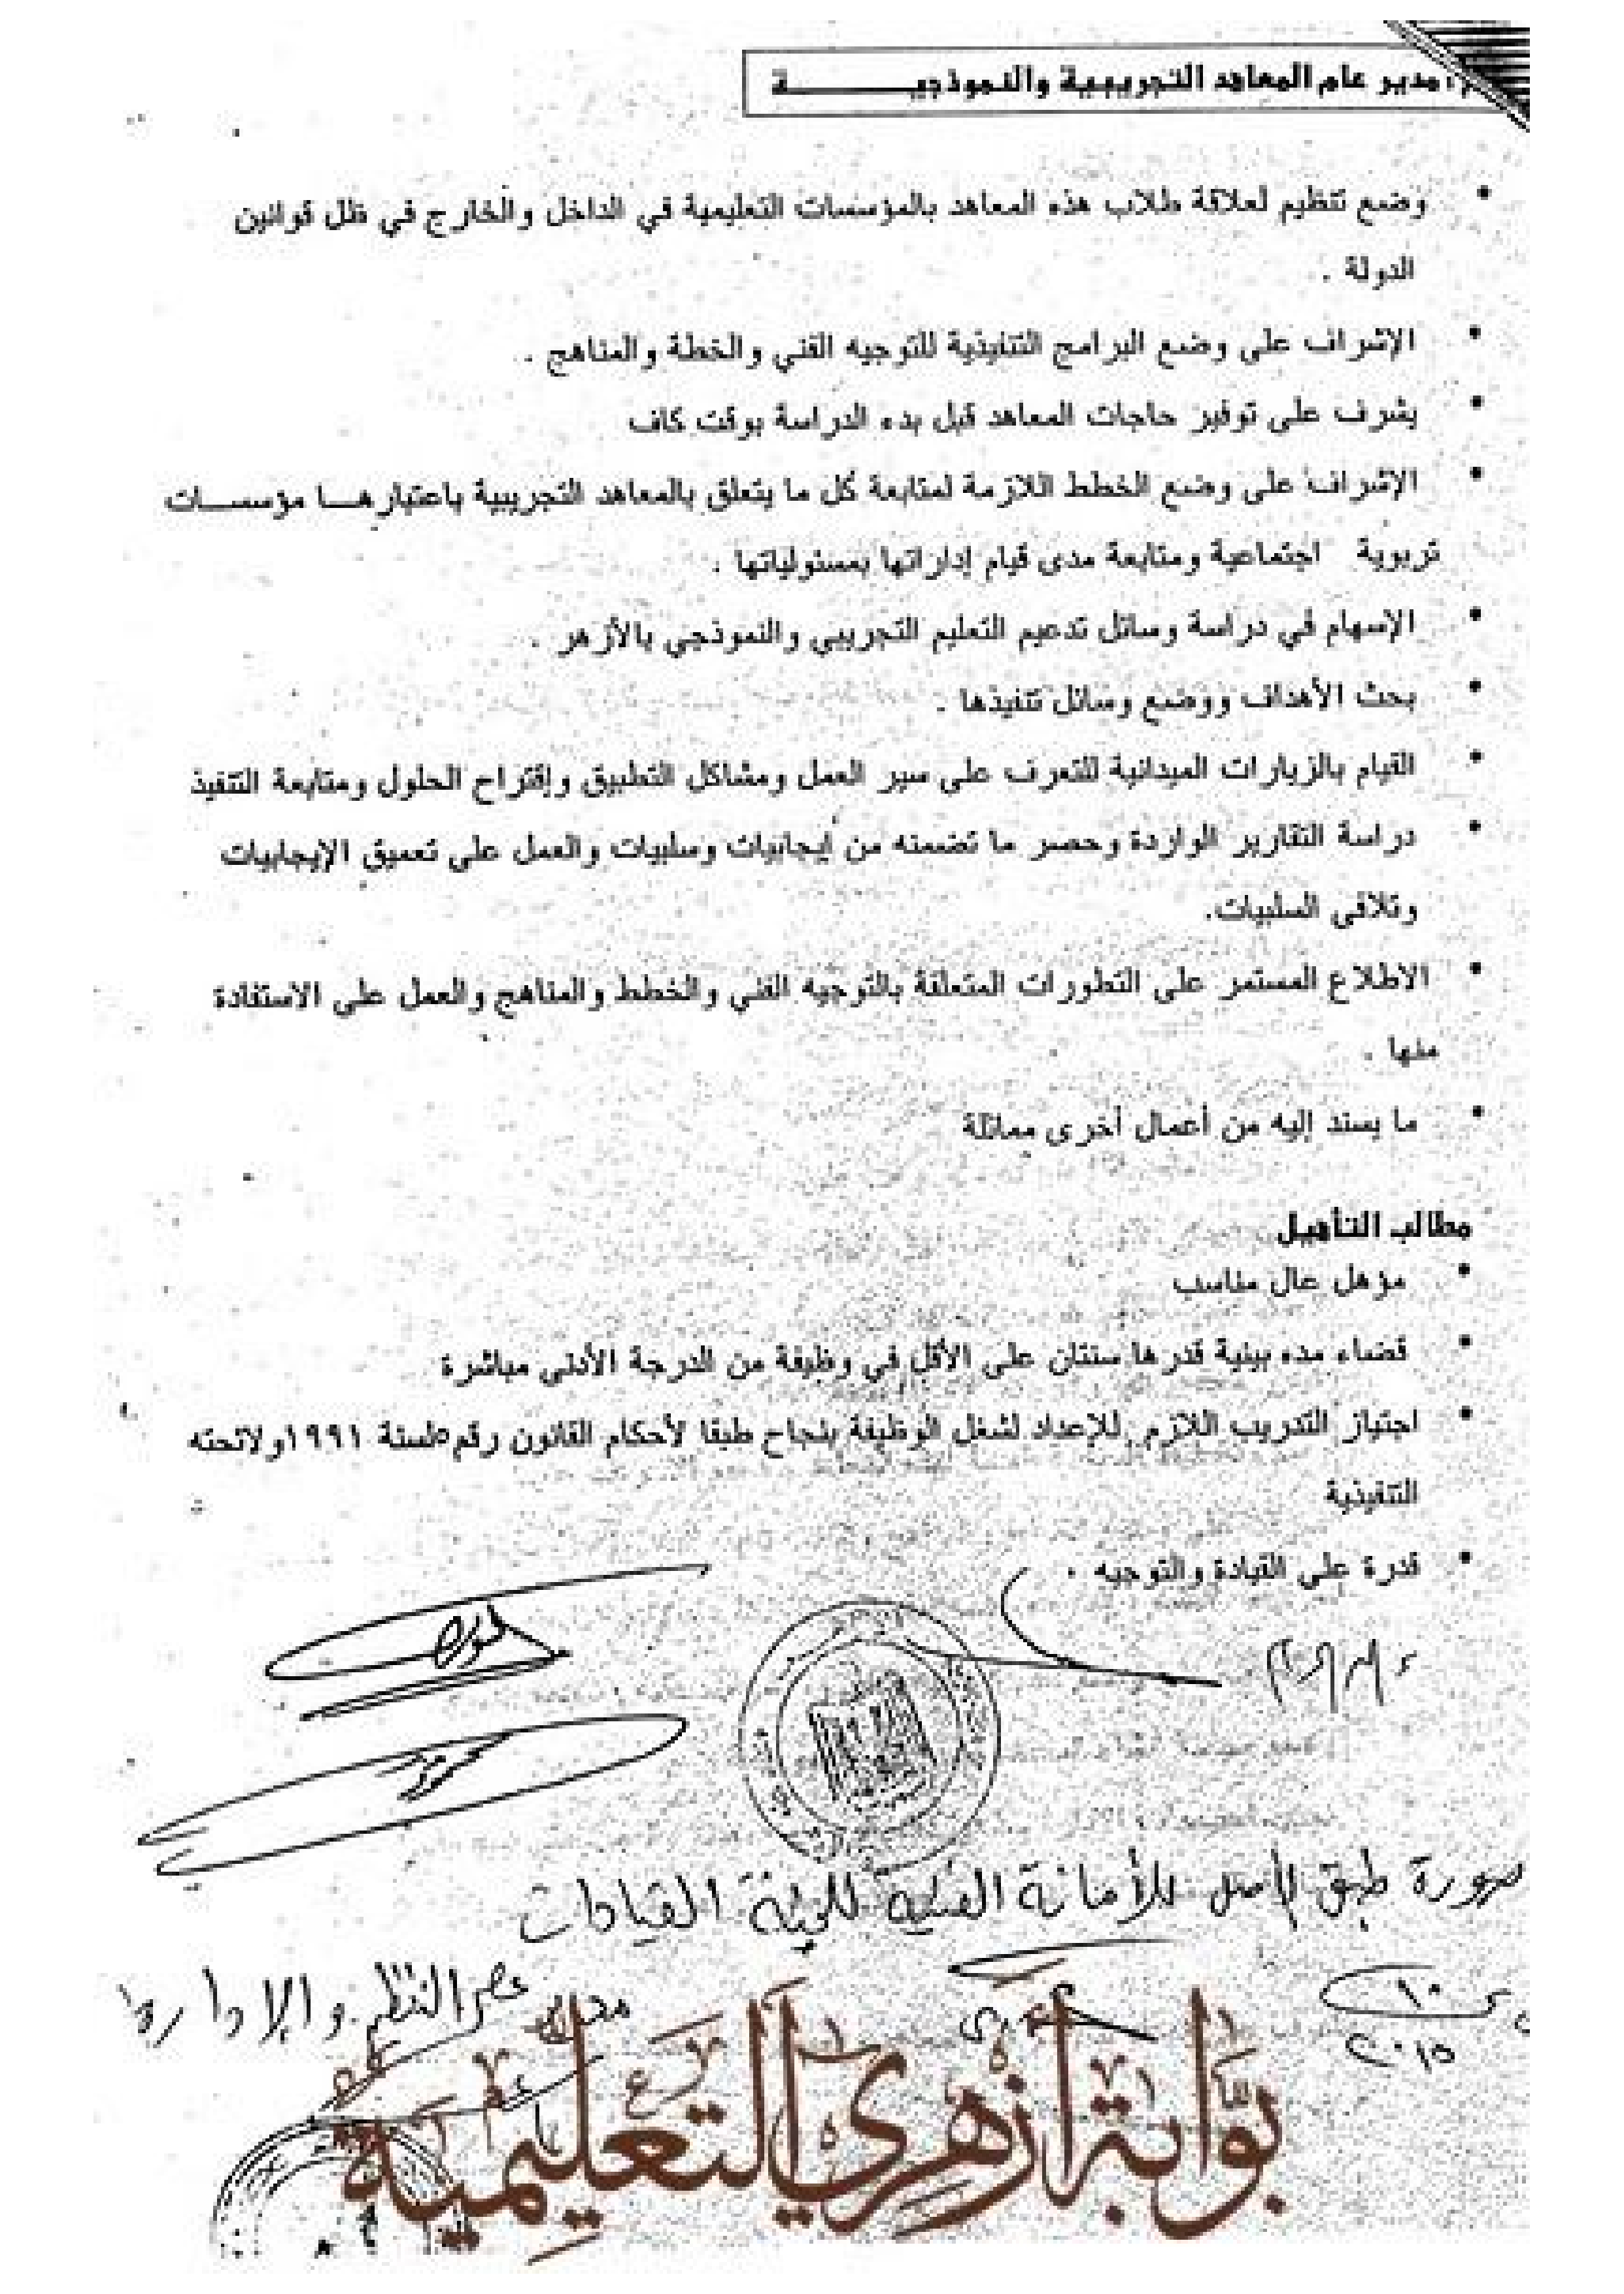 مدير عام المعاهد التجريبية والنموذجيــــــــــة
• وضع تنظيم لعلاقة طلاب هذه المعاهد بالمؤسسات التعليمية في الداخل والخارج في ظل قوانين
الدولة .
• الإشراف على وضع البرامج التنفيذية للتوجيه الفني والخطة والمناهج .
• يشرف على توفير حاجات المعاهد قبل بدء الدراسة بوقت كاف
• الإشراف على وضع الخطط اللازمة لمتابعة كل ما يتعلق بالمعاهد التجريبية باعتبارهـــا مؤسســـات
تربوية اجتماعية ومتابعة مدى قيام إداراتها بمسئولياتها .
• الإسهام في دراسة وسائل تدعيم التعليم التجريبي والنموذجي بالأزهر .
• بحث الأهداف ووضع وسائل تنفيذها .
• القيام بالزيارات الميدانية للتعرف على سير العمل ومشاكل التطبيق وإقتراح الحلول ومتابعة التنفيذ
• دراسة التقارير الواردة وحصر ما تضمنه من إيجابيات وسلبيات والعمل على تعميق الإيجابيات
وتلافى السلبيات.
• الاطلاع المستمر على التطورات المتعلقة بالتوجيه الفني والخطط والمناهج والعمل على الاستفادة
منها .
• ما يسند إليه من أعمال أخرى مماثلة
مطالب التأهيل
• مؤهل عال مناسب
• قضاء مده بينية قدرها سنتان على الأقل في وظيفة من الدرجة الأدنى مباشرة
• اجتياز التدريب اللازم للإعداد لشغل الوظيفة بنجاح طبقا لأحكام القانون رقم ٥ لسنة ١٩٩١ ولائحته
التنفيذية
• قدرة على القيادة والتوجيه .
صورة طبق الأصل للأمانة الفنية للجنة القيادات
التنظيم والإدارة
١٠
٢٠١٥
بوابة أزهري التعليمية